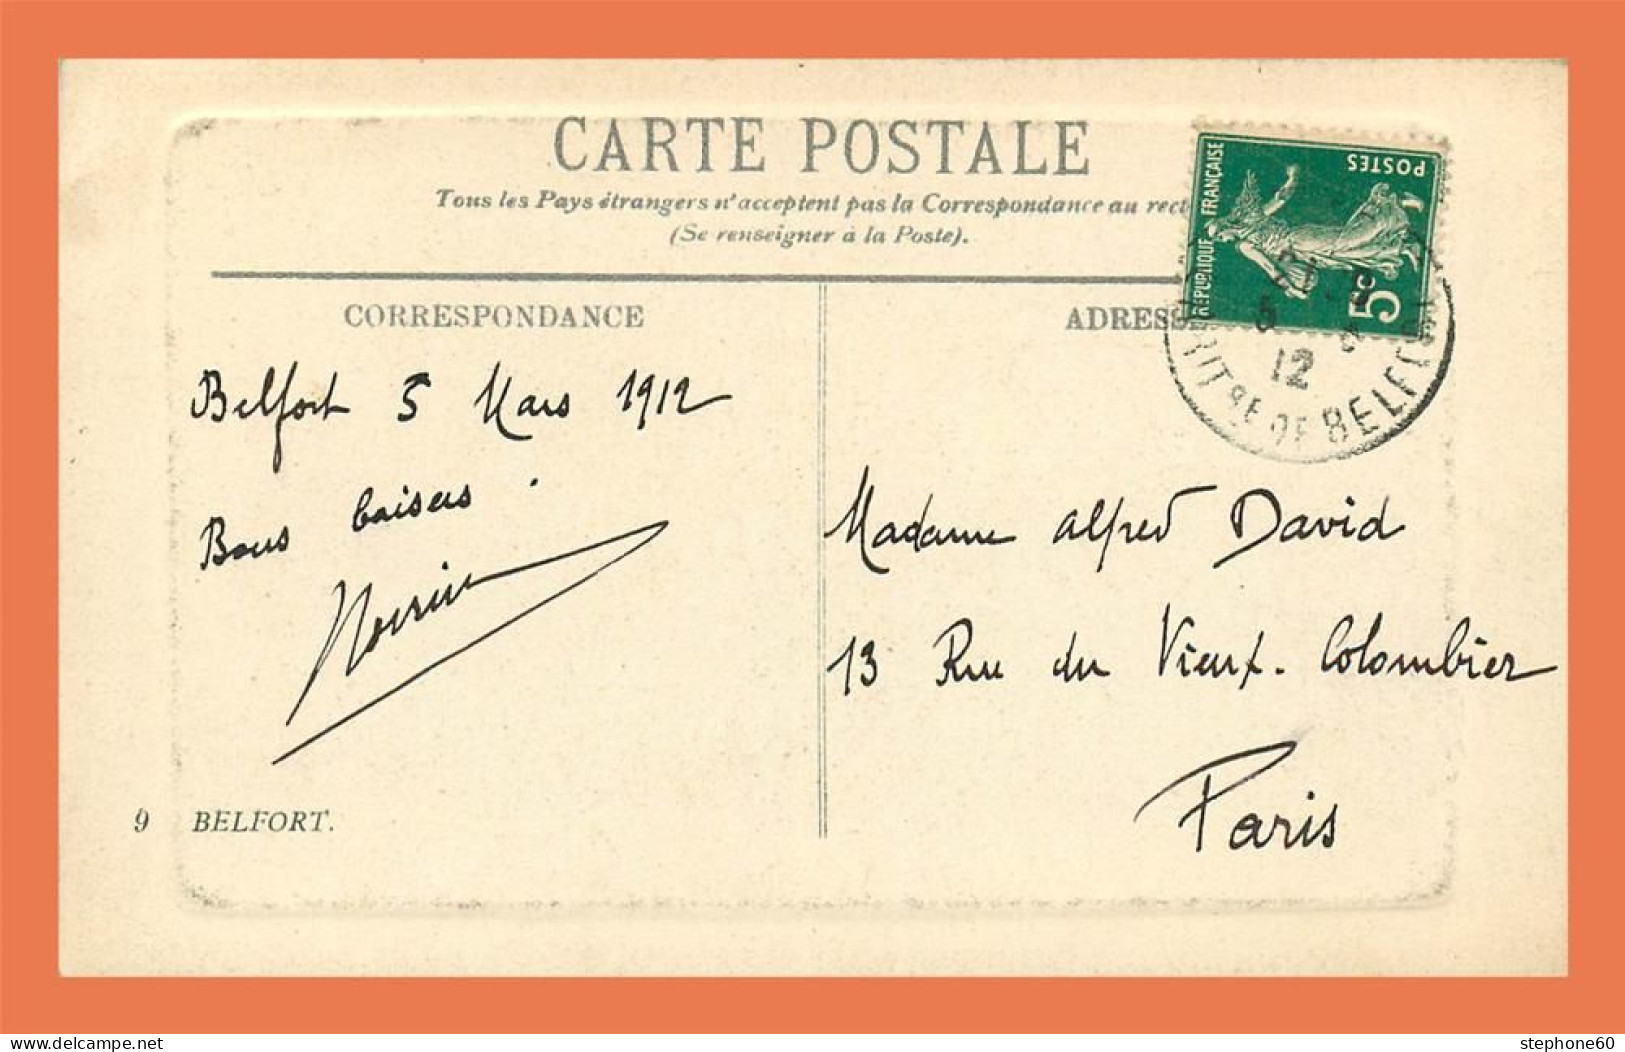 CARTE POSTALE
Tous les Pays étrangers n'acceptent pas la Correspondance au rect
(Se renseigner à la Poste).
REPUBLIQUE FRANÇAISE
POSTES
5c
CORRESPONDANCE
ADRESSE
5
12
BELFO
Belfort 5 Mars 1912
Bons baisers.
Madame Alfred David
13 Rue du Vieux-Colombier
Paris
9 BELFORT.
www.delcampe.net
stephone60